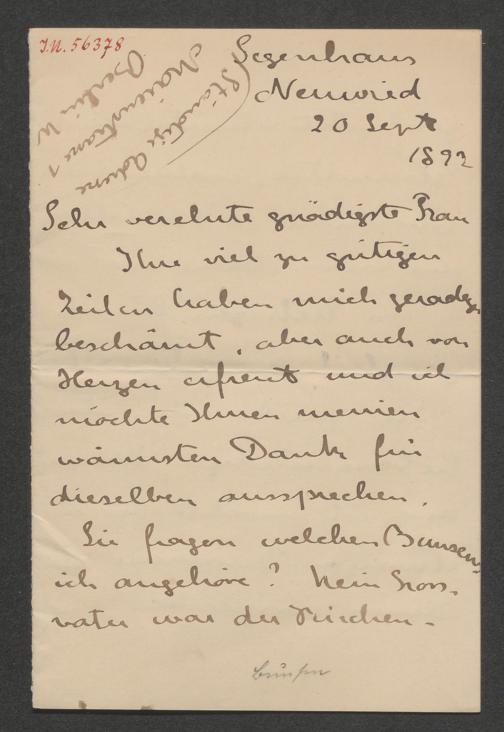 J.N. 56378
Ständige Adresse
Marienstrasse 1
Berlin W
Segenhaus
Neuwied
20 Sept
1892
Sehr verehrte gnädigste Frau
Ihre viel zu gütigen
Zeilen haben mich geradezu
beschämt, aber auch von
Herzen erfreut und ich
möchte Ihnen meinen
wärmsten Dank für
dieselben aussprechen.
Sie fragen welchen Bunsens
ich angehöre? Mein Gross-
vater war der
Bunsen